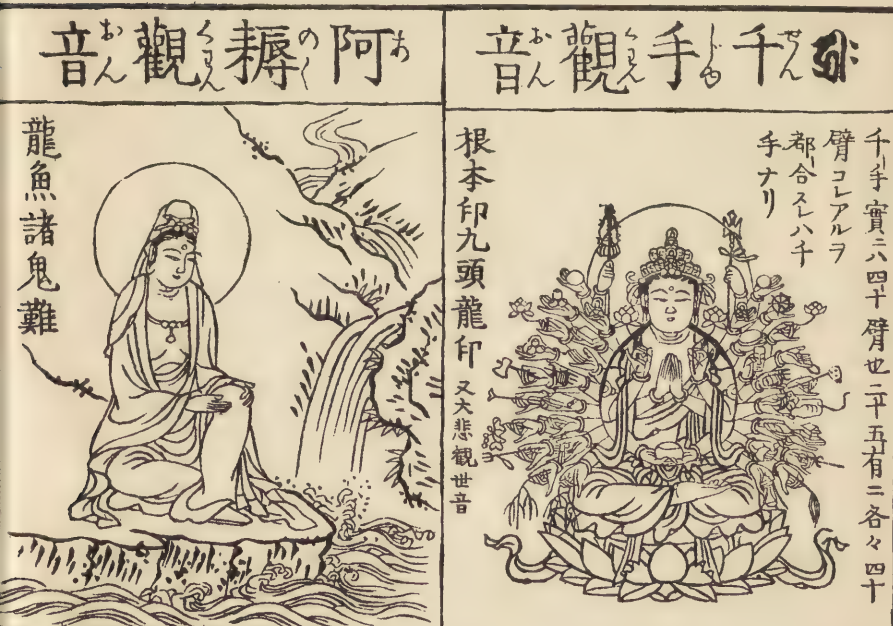 千手觀音
せんじゆくわんおん
千手實ニハ四十臂也二十五有ニ各々四十
臂コレアルヲ
都合スレハ千
手ナリ
根本印九頭龍印 又大悲觀世音
阿耨觀音
あのくくわんおん
龍魚諸鬼難